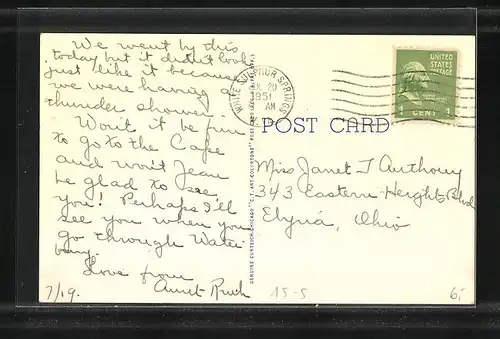 We went by this
today but it didn't look
just like it because
we were having a
thunder shower.
Won't it be fun
to go to the Cape
and won't Jean
be glad to see
you! Perhaps I'll
see you when you
go through Water-
bury.
Love from
Aunt Ruth
7/19.
WHITE SULPHUR SPRINGS
JUL 20
1951
AM
UNITED
STATES
POSTAGE
1 CENT 1
POST CARD
Miss Janet T Anthony
343 Eastern Heights Blvd
Elyria, Ohio
15-5
6,-